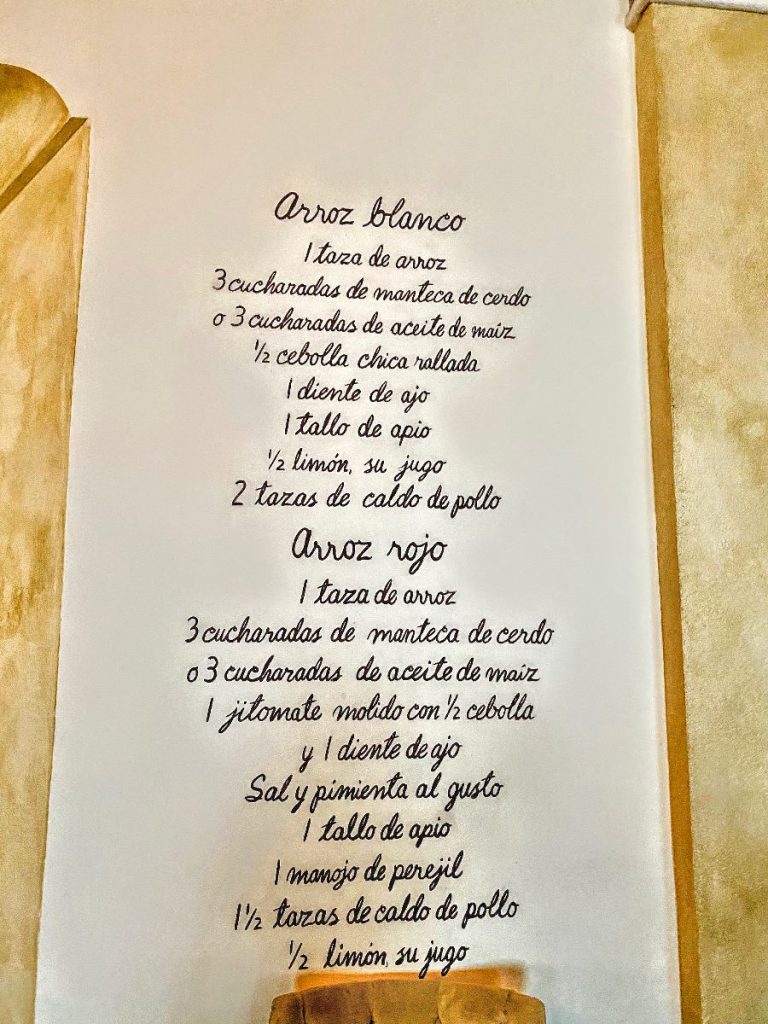 Arroz blanco
1 taza de arroz
3 cucharadas de manteca de cerdo
o 3 cucharadas de aceite de maíz
½ cebolla chica rallada
1 diente de ajo
1 tallo de apio
½ limón, su jugo
2 tazas de caldo de pollo
Arroz rojo
1 taza de arroz
3 cucharadas de manteca de cerdo
o 3 cucharadas de aceite de maíz
1 jitomate molido con ½ cebolla
y 1 diente de ajo
Sal y pimienta al gusto
1 tallo de apio
1 manojo de perejil
1½ tazas de caldo de pollo
½ limón, su jugo